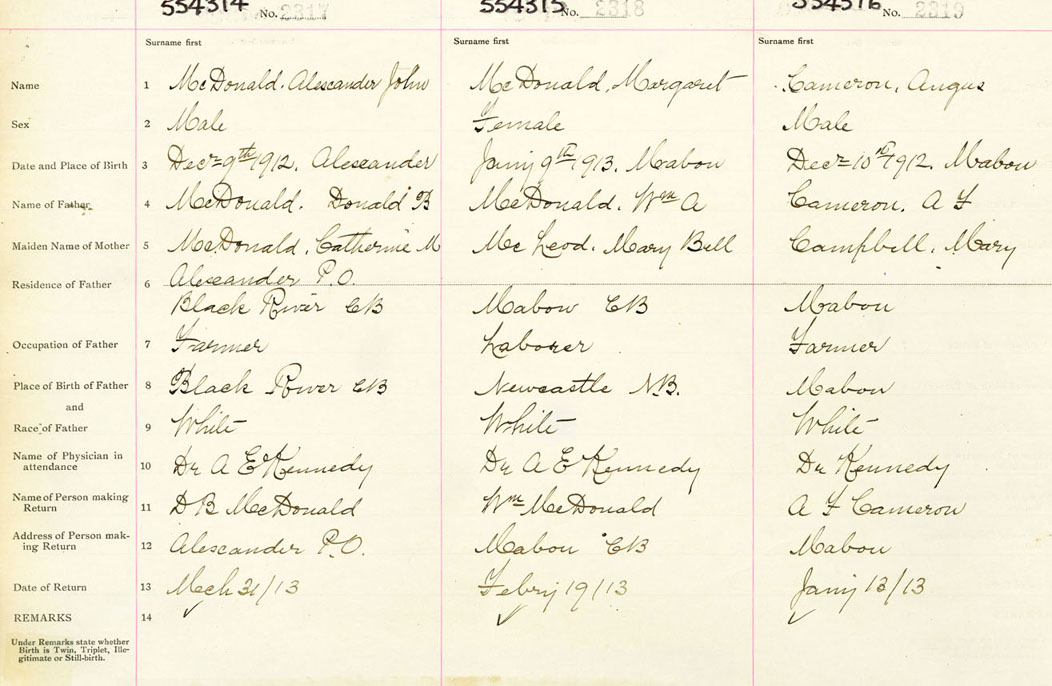 554314 No. 2317 554315 No. 2318 554316 No. 2319
Surname first Surname first Surname first
Name 1 McDonald. Alexander John McDonald, Margaret Cameron, Angus
Sex 2 Male Female Male
Date and Place of Birth 3 Decr 9th 1912. Alexander Jany 9th 1913. Mabou Decr 10th 1912. Mabou
Name of Father 4 McDonald. Donald B McDonald. Wm A Cameron. A F
Maiden Name of Mother 5 McDonald, Catherine M McLeod. Mary Bell Campbell. Mary
Alexander P.O.
Residence of Father 6
Black River CB Mabou CB Mabou
Occupation of Father 7 Farmer Laborer Farmer
Place of Birth of Father 8 Black River CB Newcastle N.B. Mabou
and
Race of Father 9 White White White
Name of Physician in
attendance 10 Dr A E Kennedy Dr A E Kennedy Dr Kennedy
Name of Person making
Return 11 D B McDonald Wm McDonald A F Cameron
Address of Person mak-
ing Return 12 Alexander P.O. Mabou CB Mabou
Date of Return 13 Mch 31/13 Febry 19/13 Jany 13/13
REMARKS 14
Under Remarks state whether
Birth is Twin, Triplet, Ille-
gitimate or Still-birth.